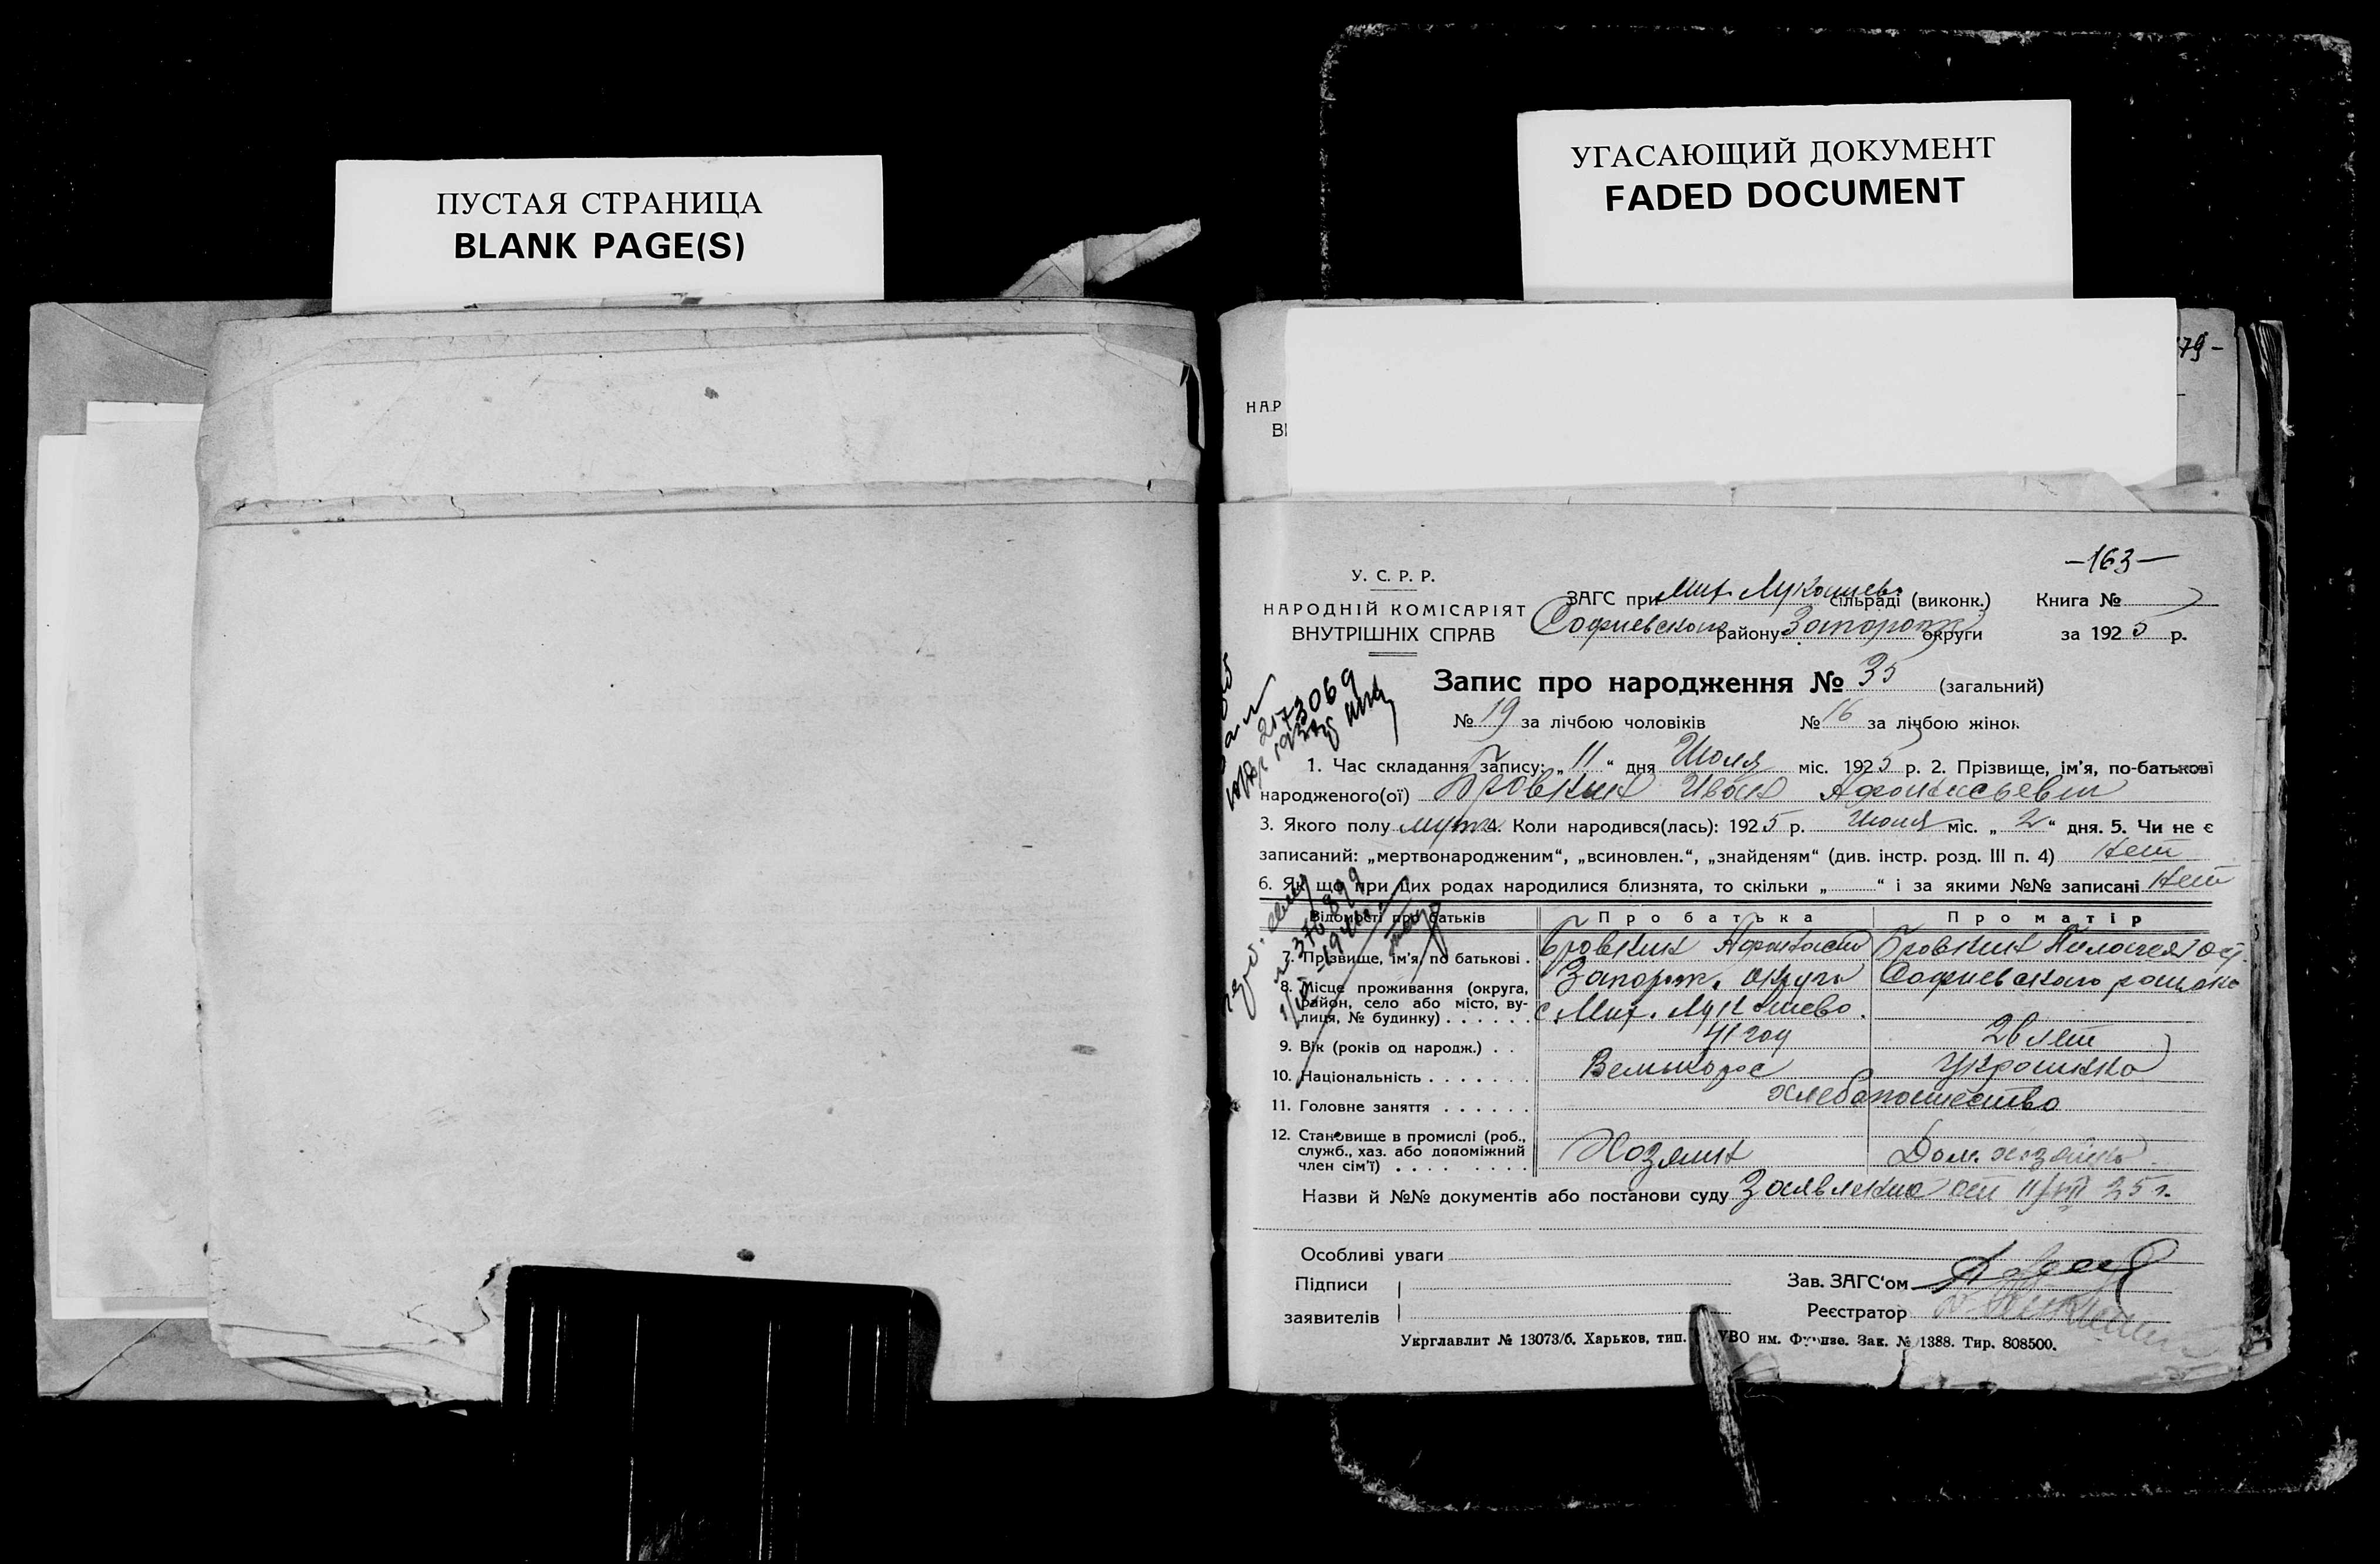 ПУСТАЯ СТРАНИЦА
BLANK PAGE(S)
УГАСАЮЩИЙ ДОКУМЕНТ
FADED DOCUMENT
79-
НАР
ВІ
-163-
У. С. Р. Р.
НАРОДНІЙ КОМІСАРІЯТ
ВНУТРІШНІХ СПРАВ
ЗАГС при Мих. Лукашев. сільраді (виконк.) Книга №
Софиевского району Запорож округи за 1925 р.
Запис про народження № 35 (загальний)
№ 19 за лічбою чоловіків № 16 за лічбою жінок
1. Час складання запису: „11“ дня Июля міс. 1925 р. 2. Прізвище, ім'я, по-батькові
народженого(ої) Бровкин Иван Афонасьевич
3. Якого полу муж 4. Коли народився(лась): 1925 р. Июля міс. „2“ дня. 5. Чи не є
записаний: „мертвонародженим“, „всиновлен.“, „знайденям“ (див. інстр. розд. III п. 4) Нет
6. Як що при цих родах народилися близнята, то скільки „ “ і за якими №№ записані Нет
Відомості про батьків Про батька Про матір
7. Прізвище, ім'я, по батькові . Бровкин Афонасий Бровкин Пелагея
8. Місце проживання (округа, Запорож. округа Софиевского района
район, село або місто, ву-
лиця, № будинку) . . . . . . с. Мих. Лукашево.
9. Вік (років од народж.) . . 41 год 26 лет
10. Національність . . . . . . . Великорос Украинка
11. Головне заняття . . . . . . хлебопашество
12. Становище в промислі (роб.,
служб., хаз. або допоміжний Хозяин Дом. хозяйка
член сім'ї) . . . . . . . .
Назви й №№ документів або постанови суду Заявление от 11/VII 25 г.
Особливі уваги
Підписи Зав. ЗАГС'ом
заявителів Реєстратор
Укрглавлит № 13073/б. Харьков, тип. УВО им. Фрунзе. Зак. № 1388. Тир. 808500.